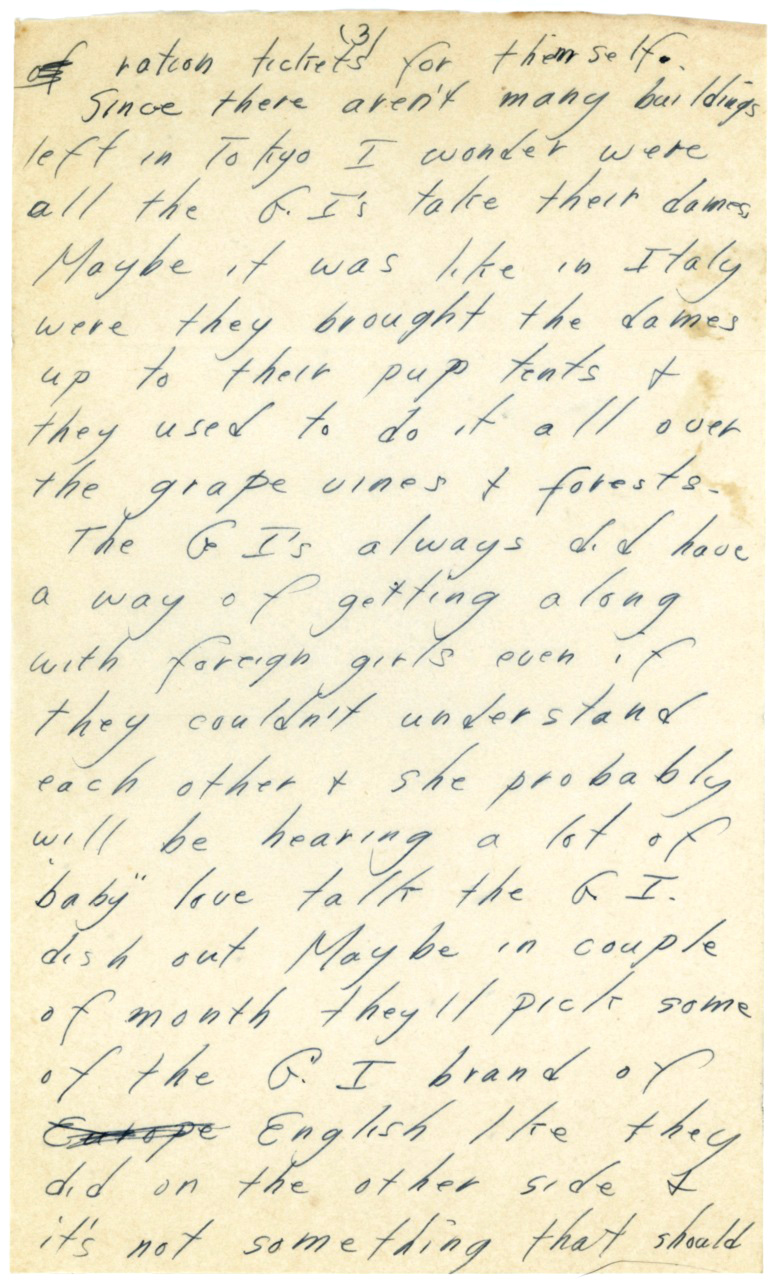 (3)
of ration tickets for themself.
Since there aren't many buildings
left in Tokyo I wonder were
all the G.I's take their dames.
Maybe it was like in Italy
were they brought the dames
up to their pup tents &
they used to do it all over
the grape vines & forests.
The G I's always did have
a way of getting along
with foreign girls even if
they couldn't understand
each other & she probably
will be hearing a lot of
"baby" love talk the G I.
dish out Maybe in couple
of month they'll pick some
of the G. I brand of
Europe English like they
did on the other side &
it's not something that should